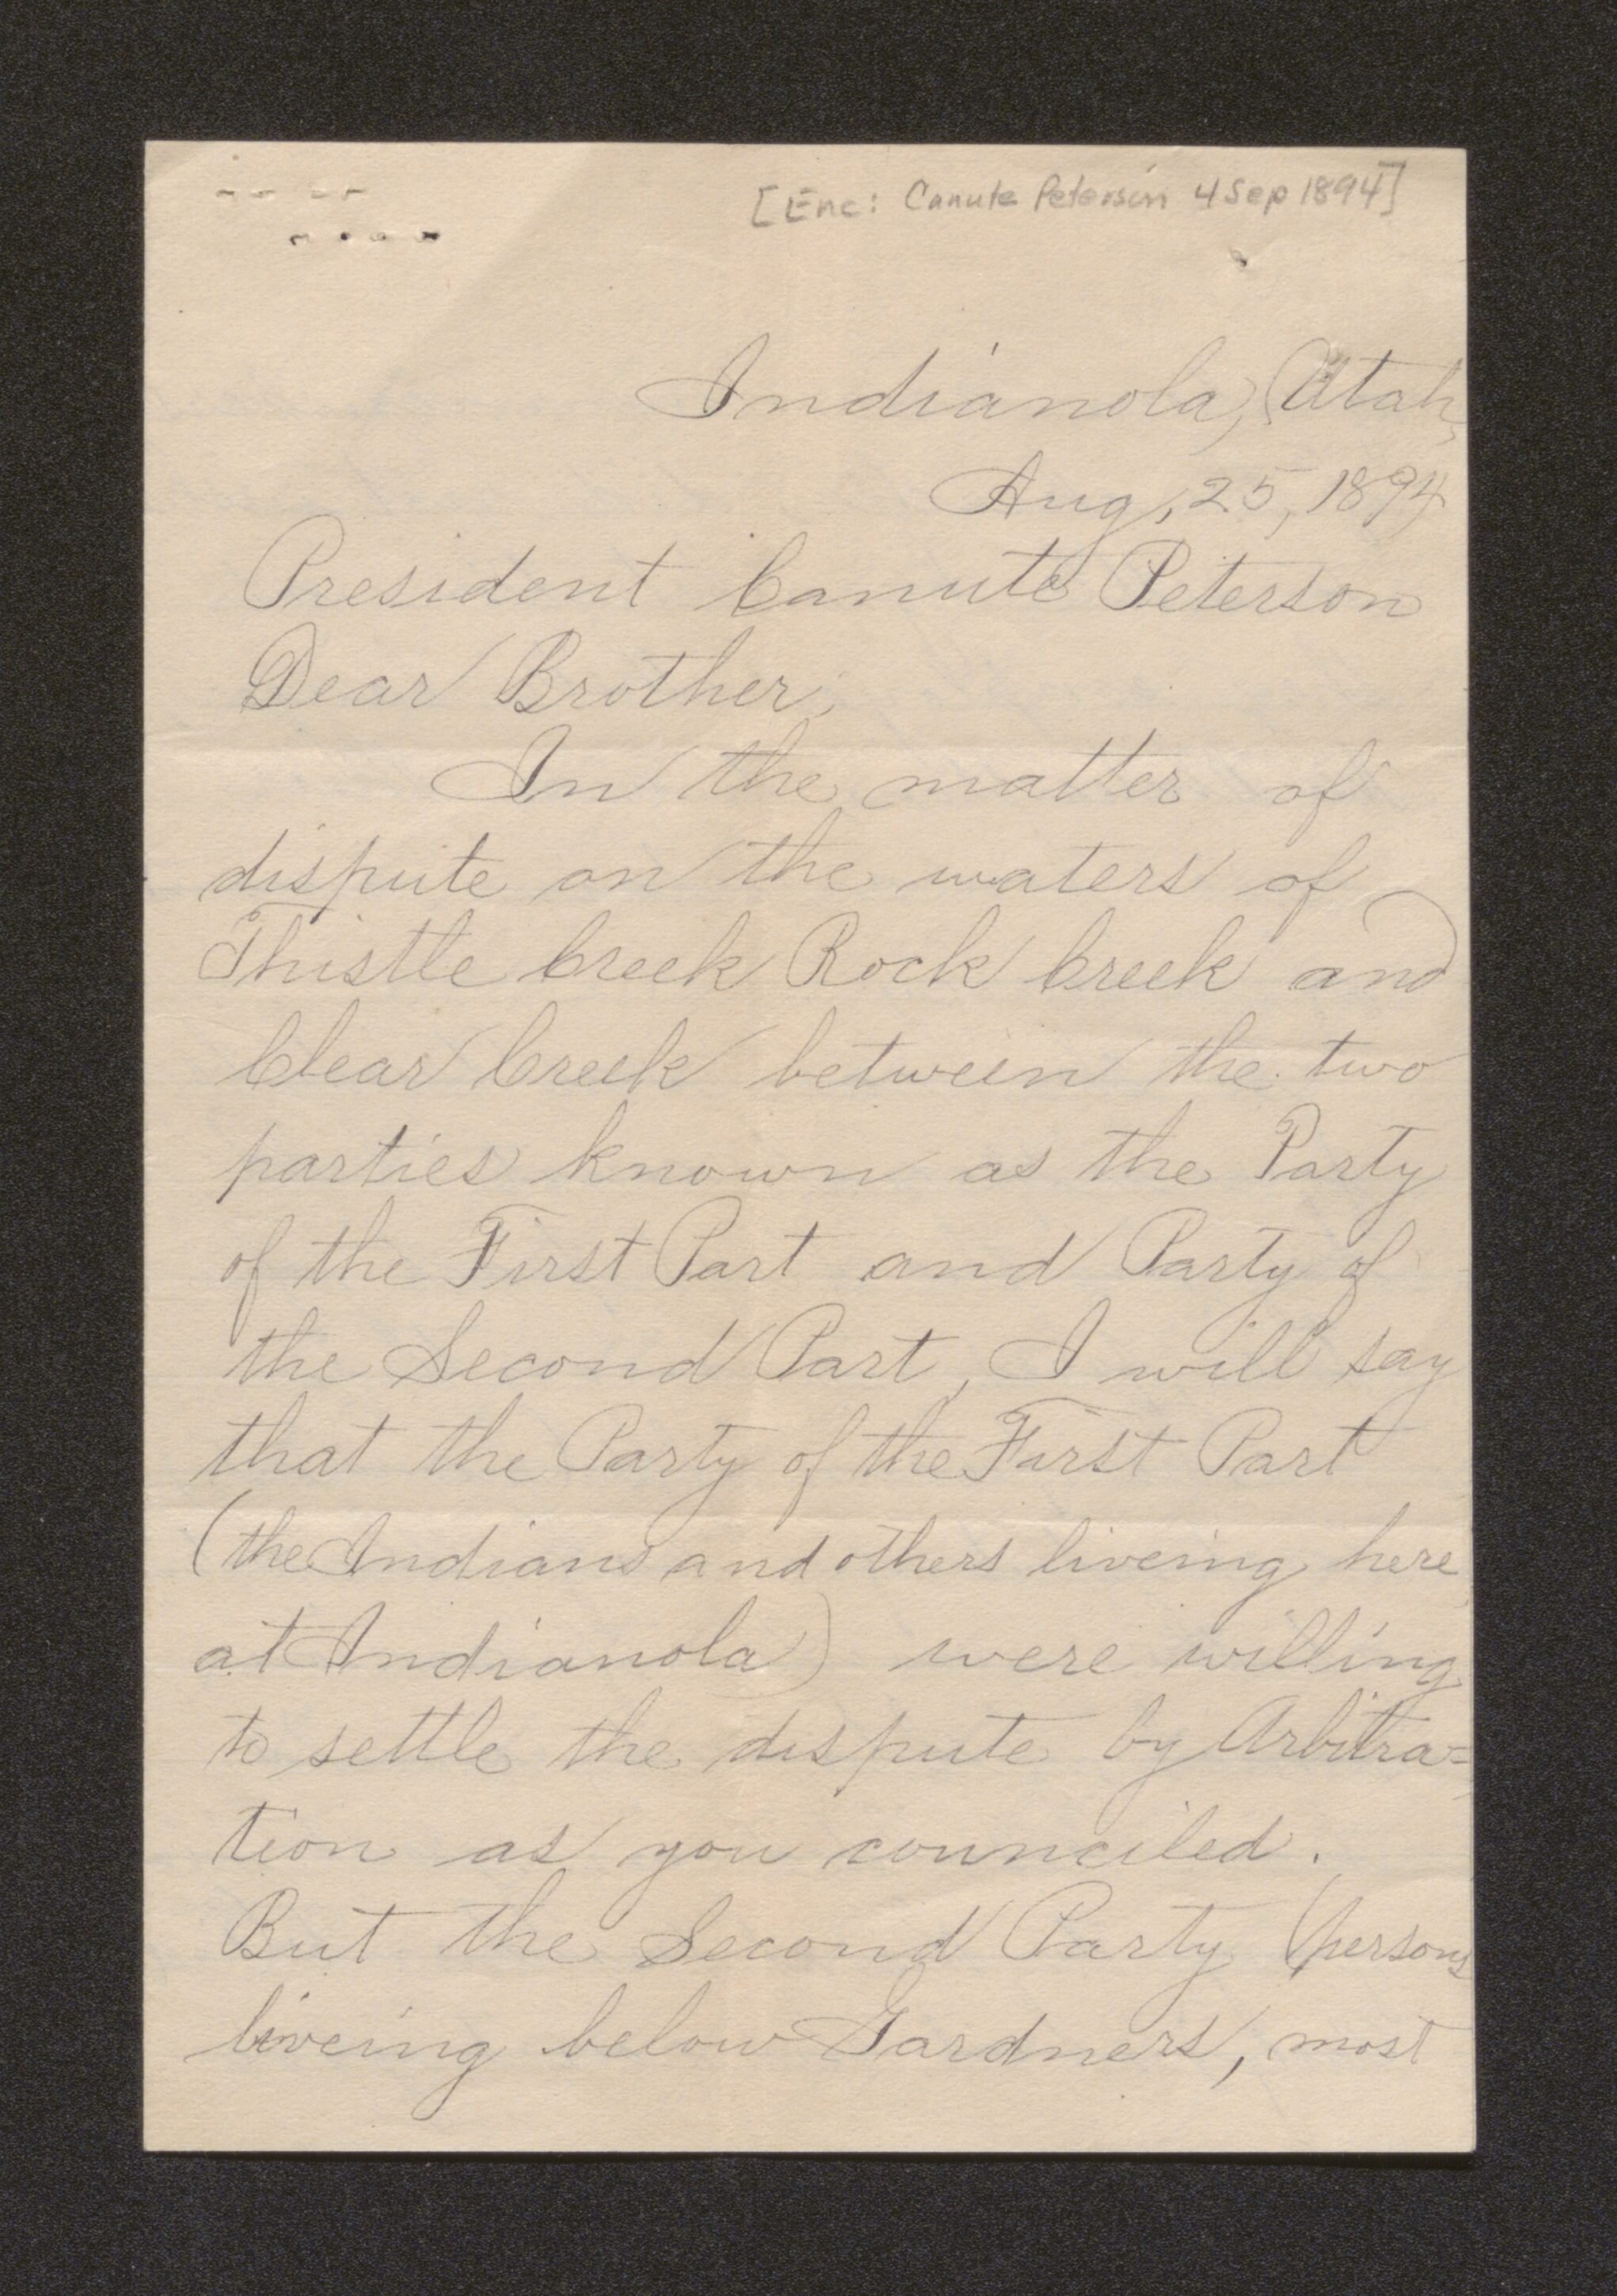 [Enc: Canute Peterson 4 Sep 1894]
Indianola, Utah,
Aug, 25, 1894
President Canute Peterson
Dear Brother;
In the matter of
dispute on the waters of
Thistle Creek Rock Creek and
Clear Creek between the two
parties known as the Party
of the First Part and Party of
the Second Part, I will say
that the Party of the First Part
(the Indians and others liveing here
at Indianola) were willing
to settle the dispute by Arbitra=
tion as you counciled.
But the Second Party (persons
liveing below Gardners, most